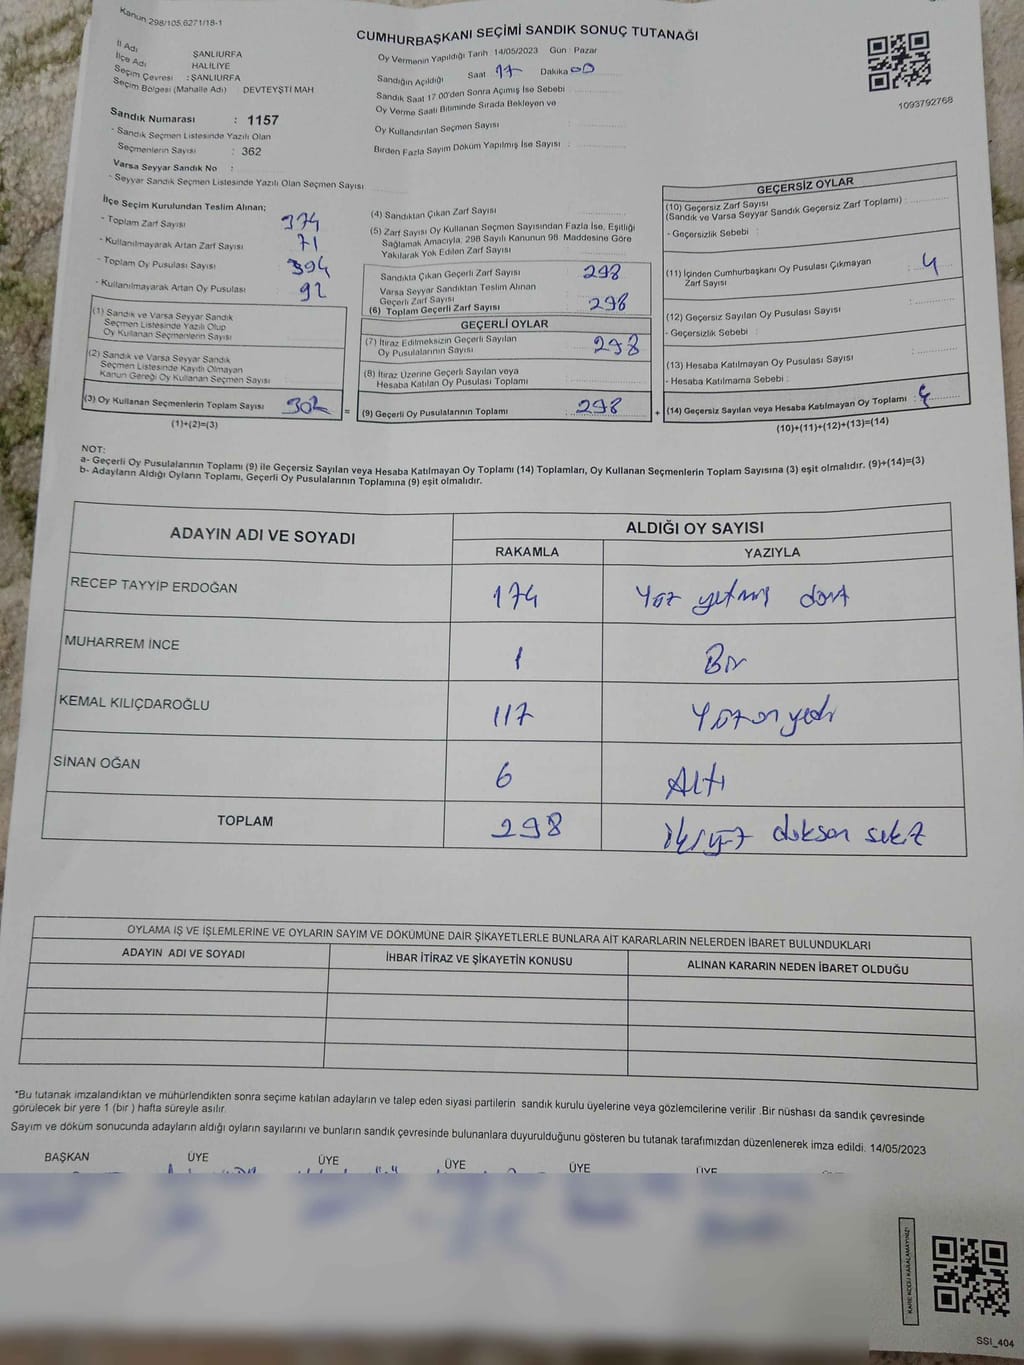 Kanun 298/105.6271/18-1
CUMHURBAŞKANI SEÇİMİ SANDIK SONUÇ TUTANAĞI
İl Adı ŞANLIURFA
İlçe Adı HALİLİYE
Seçim Çevresi : ŞANLIURFA
Seçim Bölgesi (Mahalle Adı) DEVTEYŞTİ MAH
Sandık Numarası : 1157
- Sandık Seçmen Listesinde Yazılı Olan
Seçmenlerin Sayısı : 362
Varsa Seyyar Sandık No :
- Seyyar Sandık Seçmen Listesinde Yazılı Olan Seçmen Sayısı
Oy Vermenin Yapıldığı Tarih 14/05/2023 Gün : Pazar
Sandığın Açıldığı Saat 17 Dakika 00
Sandık Saat 17.00'den Sonra Açımış İse Sebebi
Oy Verme Saati Bitiminde Sırada Bekleyen ve
Oy Kullandırılan Seçmen Sayısı :
Birden Fazla Sayım Döküm Yapılmış İse Sayısı :
1093792768
İlçe Seçim Kurulundan Teslim Alınan;
- Toplam Zarf Sayısı 374
- Kullanılmayarak Artan Zarf Sayısı 71
- Toplam Oy Pusulası Sayısı 394
- Kullanılmayarak Artan Oy Pusulası 92
(1) Sandık ve Varsa Seyyar Sandık
Seçmen Listesinde Yazılı Olup
Oy Kullanan Seçmenlerin Sayısı :
(2) Sandık ve Varsa Seyyar Sandık
Seçmen Listesinde Kayıtlı Olmayan
Kanun Gereği Oy Kullanan Seçmen Sayısı :
(3) Oy Kullanan Seçmenlerin Toplam Sayısı 302 =
(1)+(2)=(3)
(4) Sandıktan Çıkan Zarf Sayısı :
(5) Zarf Sayısı Oy Kullanan Seçmen Sayısından Fazla İse, Eşitliği
Sağlamak Amacıyla, 298 Sayılı Kanunun 98. Maddesine Göre
Yakılarak Yok Edilen Zarf Sayısı :
Sandıkta Çıkan Geçerli Zarf Sayısı : 298
Varsa Seyyar Sandıktan Teslim Alınan
Geçerli Zarf Sayısı :
(6) Toplam Geçerli Zarf Sayısı : 298
GEÇERLİ OYLAR
(7) İtiraz Edilmeksizin Geçerli Sayılan
Oy Pusulalarının Sayısı : 298
(8) İtiraz Üzerine Geçerli Sayılan veya
Hesaba Katılan Oy Pusulası Toplamı :
(9) Geçerli Oy Pusulalarının Toplamı : 298 +
GEÇERSİZ OYLAR
(10) Geçersiz Zarf Sayısı
(Sandık ve Varsa Seyyar Sandık Geçersiz Zarf Toplamı) :
- Geçersizlik Sebebi :
(11) İçinden Cumhurbaşkanı Oy Pusulası Çıkmayan
Zarf Sayısı : 4
(12) Geçersiz Sayılan Oy Pusulası Sayısı :
- Geçersizlik Sebebi :
(13) Hesaba Katılmayan Oy Pusulası Sayısı :
- Hesaba Katılmama Sebebi :
(14) Geçersiz Sayılan veya Hesaba Katılmayan Oy Toplamı : 4
(10)+(11)+(12)+(13)=(14)
NOT:
a- Geçerli Oy Pusulalarının Toplamı (9) ile Geçersiz Sayılan veya Hesaba Katılmayan Oy Toplamı (14) Toplamları, Oy Kullanan Seçmenlerin Toplam Sayısına (3) eşit olmalıdır. (9)+(14)=(3)
b- Adayların Aldığı Oyların Toplamı, Geçerli Oy Pusulalarının Toplamına (9) eşit olmalıdır.
ADAYIN ADI VE SOYADI ALDIĞI OY SAYISI
RAKAMLA YAZIYLA
RECEP TAYYİP ERDOĞAN 174 Yüz yetmiş dört
MUHARREM İNCE 1 Bir
KEMAL KILIÇDAROĞLU 117 Yüz on yedi
SİNAN OĞAN 6 Altı
TOPLAM 298 ikiyüz doksan sekiz
OYLAMA İŞ VE İŞLEMLERİNE VE OYLARIN SAYIM VE DÖKÜMÜNE DAİR ŞİKAYETLERLE BUNLARA AİT KARARLARIN NELERDEN İBARET BULUNDUKLARI
ADAYIN ADI VE SOYADI İHBAR İTİRAZ VE ŞİKAYETİN KONUSU ALINAN KARARIN NEDEN İBARET OLDUĞU
*Bu tutanak imzalandıktan ve mühürlendikten sonra seçime katılan adayların ve talep eden siyasi partilerin sandık kurulu üyelerine veya gözlemcilerine verilir .Bir nüshası da sandık çevresinde
görülecek bir yere 1 (bir ) hafta süreyle asılır.
Sayım ve döküm sonucunda adayların aldığı oyların sayılarını ve bunların sandık çevresinde bulunanlara duyurulduğunu gösteren bu tutanak tarafımızdan düzenlenerek imza edildi. 14/05/2023
BAŞKAN ÜYE ÜYE ÜYE ÜYE ÜYE
KAREKODU KARALAMAYINIZ!
SSI_404